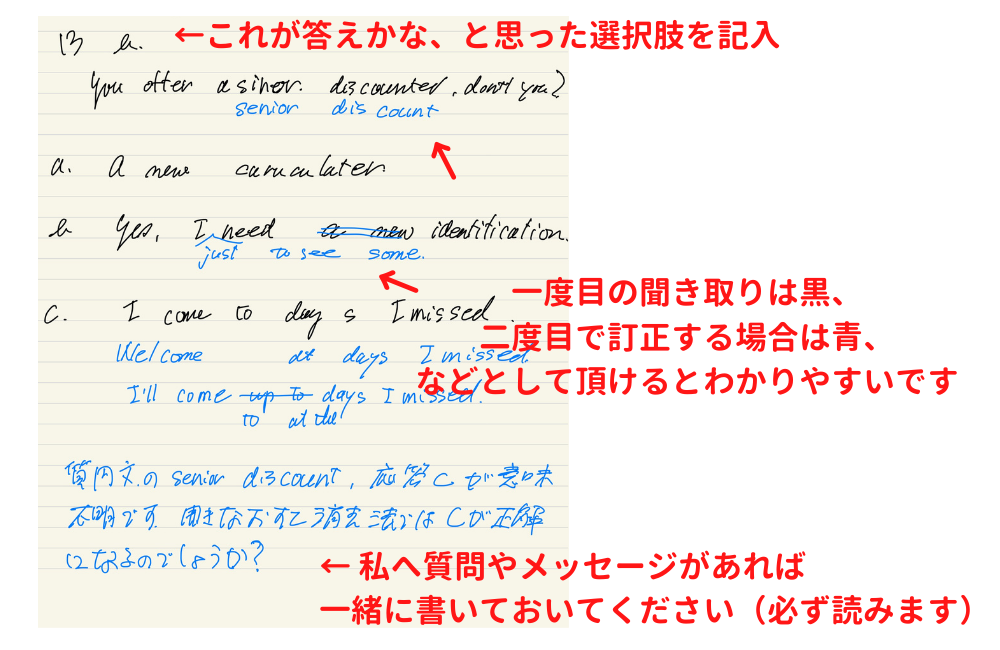 13 b. ←これが答えかな、と思った選択肢を記入
You offer a sinor. discounter, don't you?
senior discount
a. A new caruculater
b Yes, I need a new identification.
just to see some.
一度目の聞き取りは黒、
c. I come to day s I missed.
二度目で訂正する場合は青、
Welcome at days I missed.
などとして頂けるとわかりやすいです
I'll come up to days I missed.
to at the
質問文の senior discount, 応答Cが意味
不明です 聞きなおすと消去法ではCが正解
になるのでしょうか?
← 私へ質問やメッセージがあれば
一緒に書いておいてください（必ず読みます）